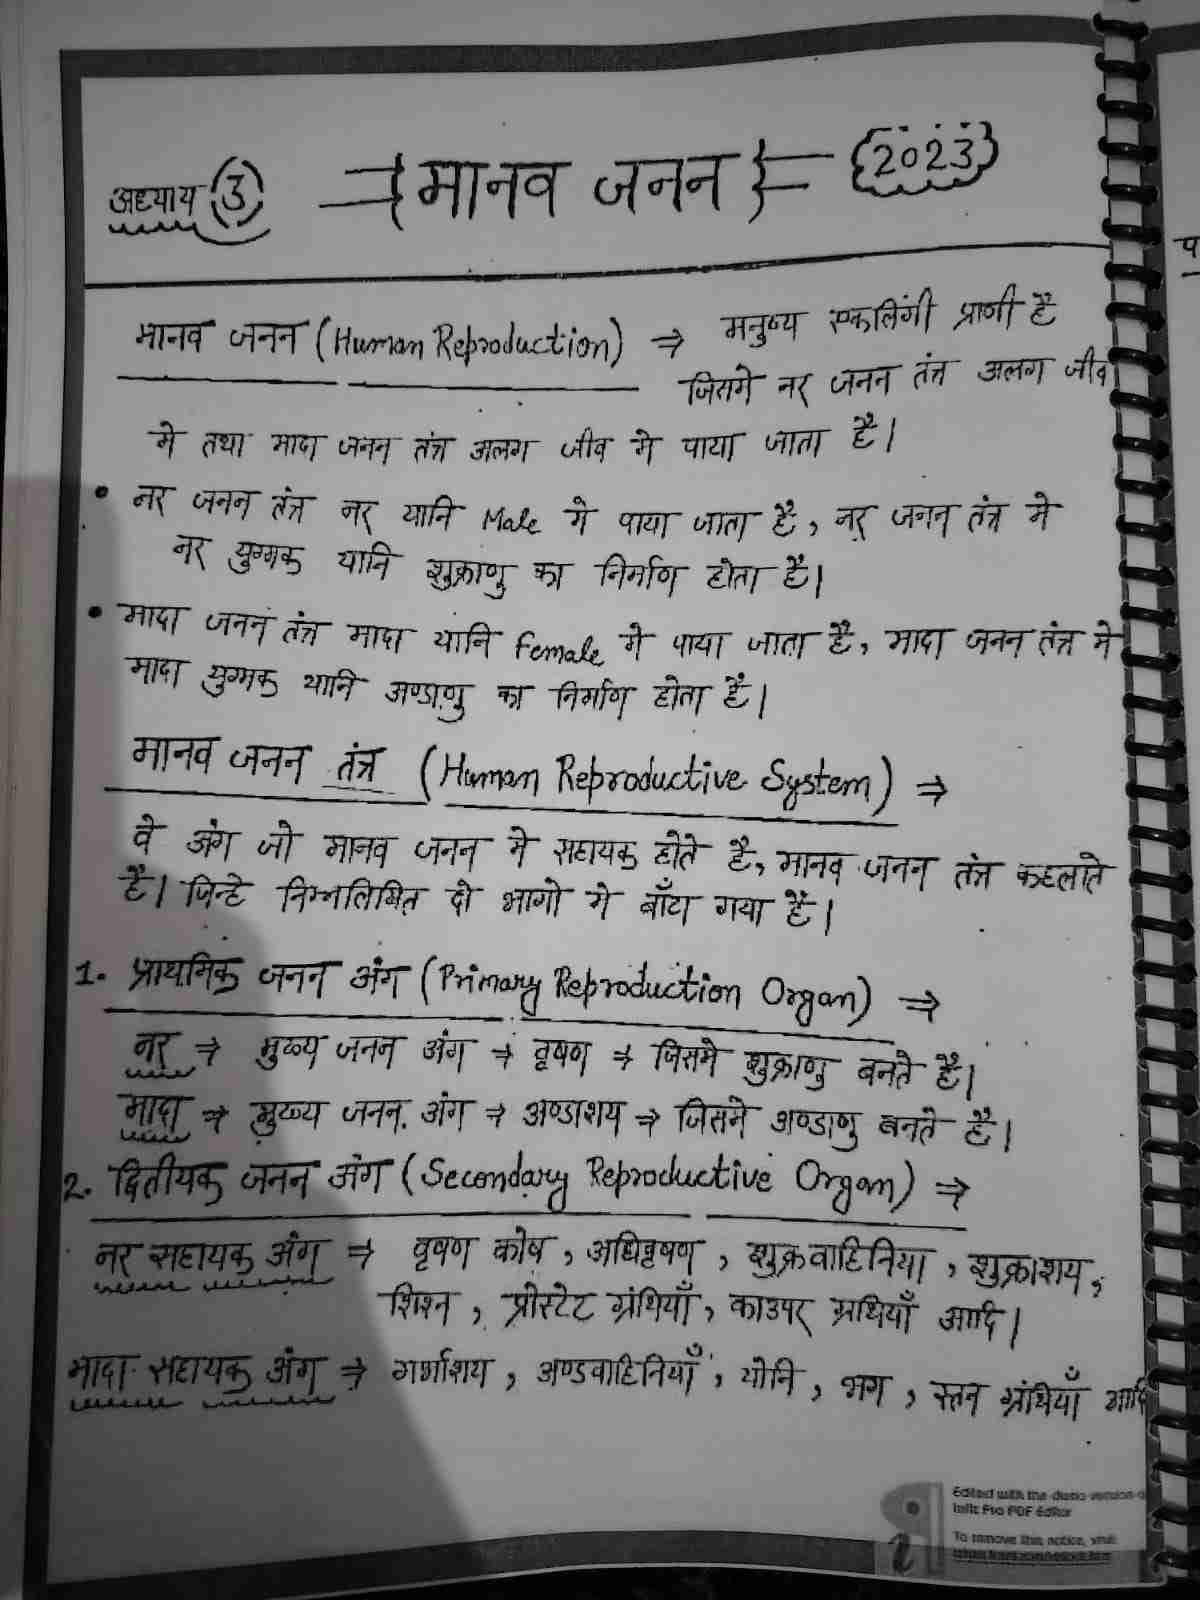 अध्याय 3 ⇒{मानव जनन}= {2023}
मानव जनन (Human Reproduction) ⇒ मनुष्य एकलिंगी प्राणी है
जिसमे नर जनन तंत्र अलग जीव
मे तथा मादा जनन तंत्र अलग जीव मे पाया जाता है।
• नर जनन तंत्र नर यानि Male मे पाया जाता है, नर जनन तंत्र मे
नर युग्मक यानि शुक्राणु का निर्माण होता है।
• मादा जनन तंत्र मादा यानि Female मे पाया जाता है, मादा जनन तंत्र मे
मादा युग्मक यानि अण्डाणु का निर्माण होता है।
मानव जनन तंत्र (Human Reproductive System) ⇒
वे अंग जो मानव जनन मे सहायक होते है, मानव जनन तंत्र कहलाते
है। जिन्हे निम्नलिखित दो भागो मे बाँटा गया है।
1. प्राथमिक जनन अंग (Primary Reproduction Organ) ⇒
नर ⇒ मुख्य जनन अंग ⇒ वृषण ⇒ जिसमे शुक्राणु बनते है।
मादा ⇒ मुख्य जनन अंग ⇒ अण्डाशय ⇒ जिसमे अण्डाणु बनते है।
2. द्वितीयक जनन अंग (Secondary Reproductive Organ) ⇒
नर सहायक अंग ⇒ वृषण कोष, अधिवृषण, शुक्रवाहिनिया, शुक्राशय,
शिश्न, प्रोस्टेट ग्रंथियाँ, काउपर ग्रंथियाँ आदि।
मादा सहायक अंग ⇒ गर्भाशय, अण्डवाहिनियाँ, योनि, भग, स्तन ग्रंथियाँ आदि
Edited with the demo version of
Infix Pro PDF Editor
To remove this notice, visit: